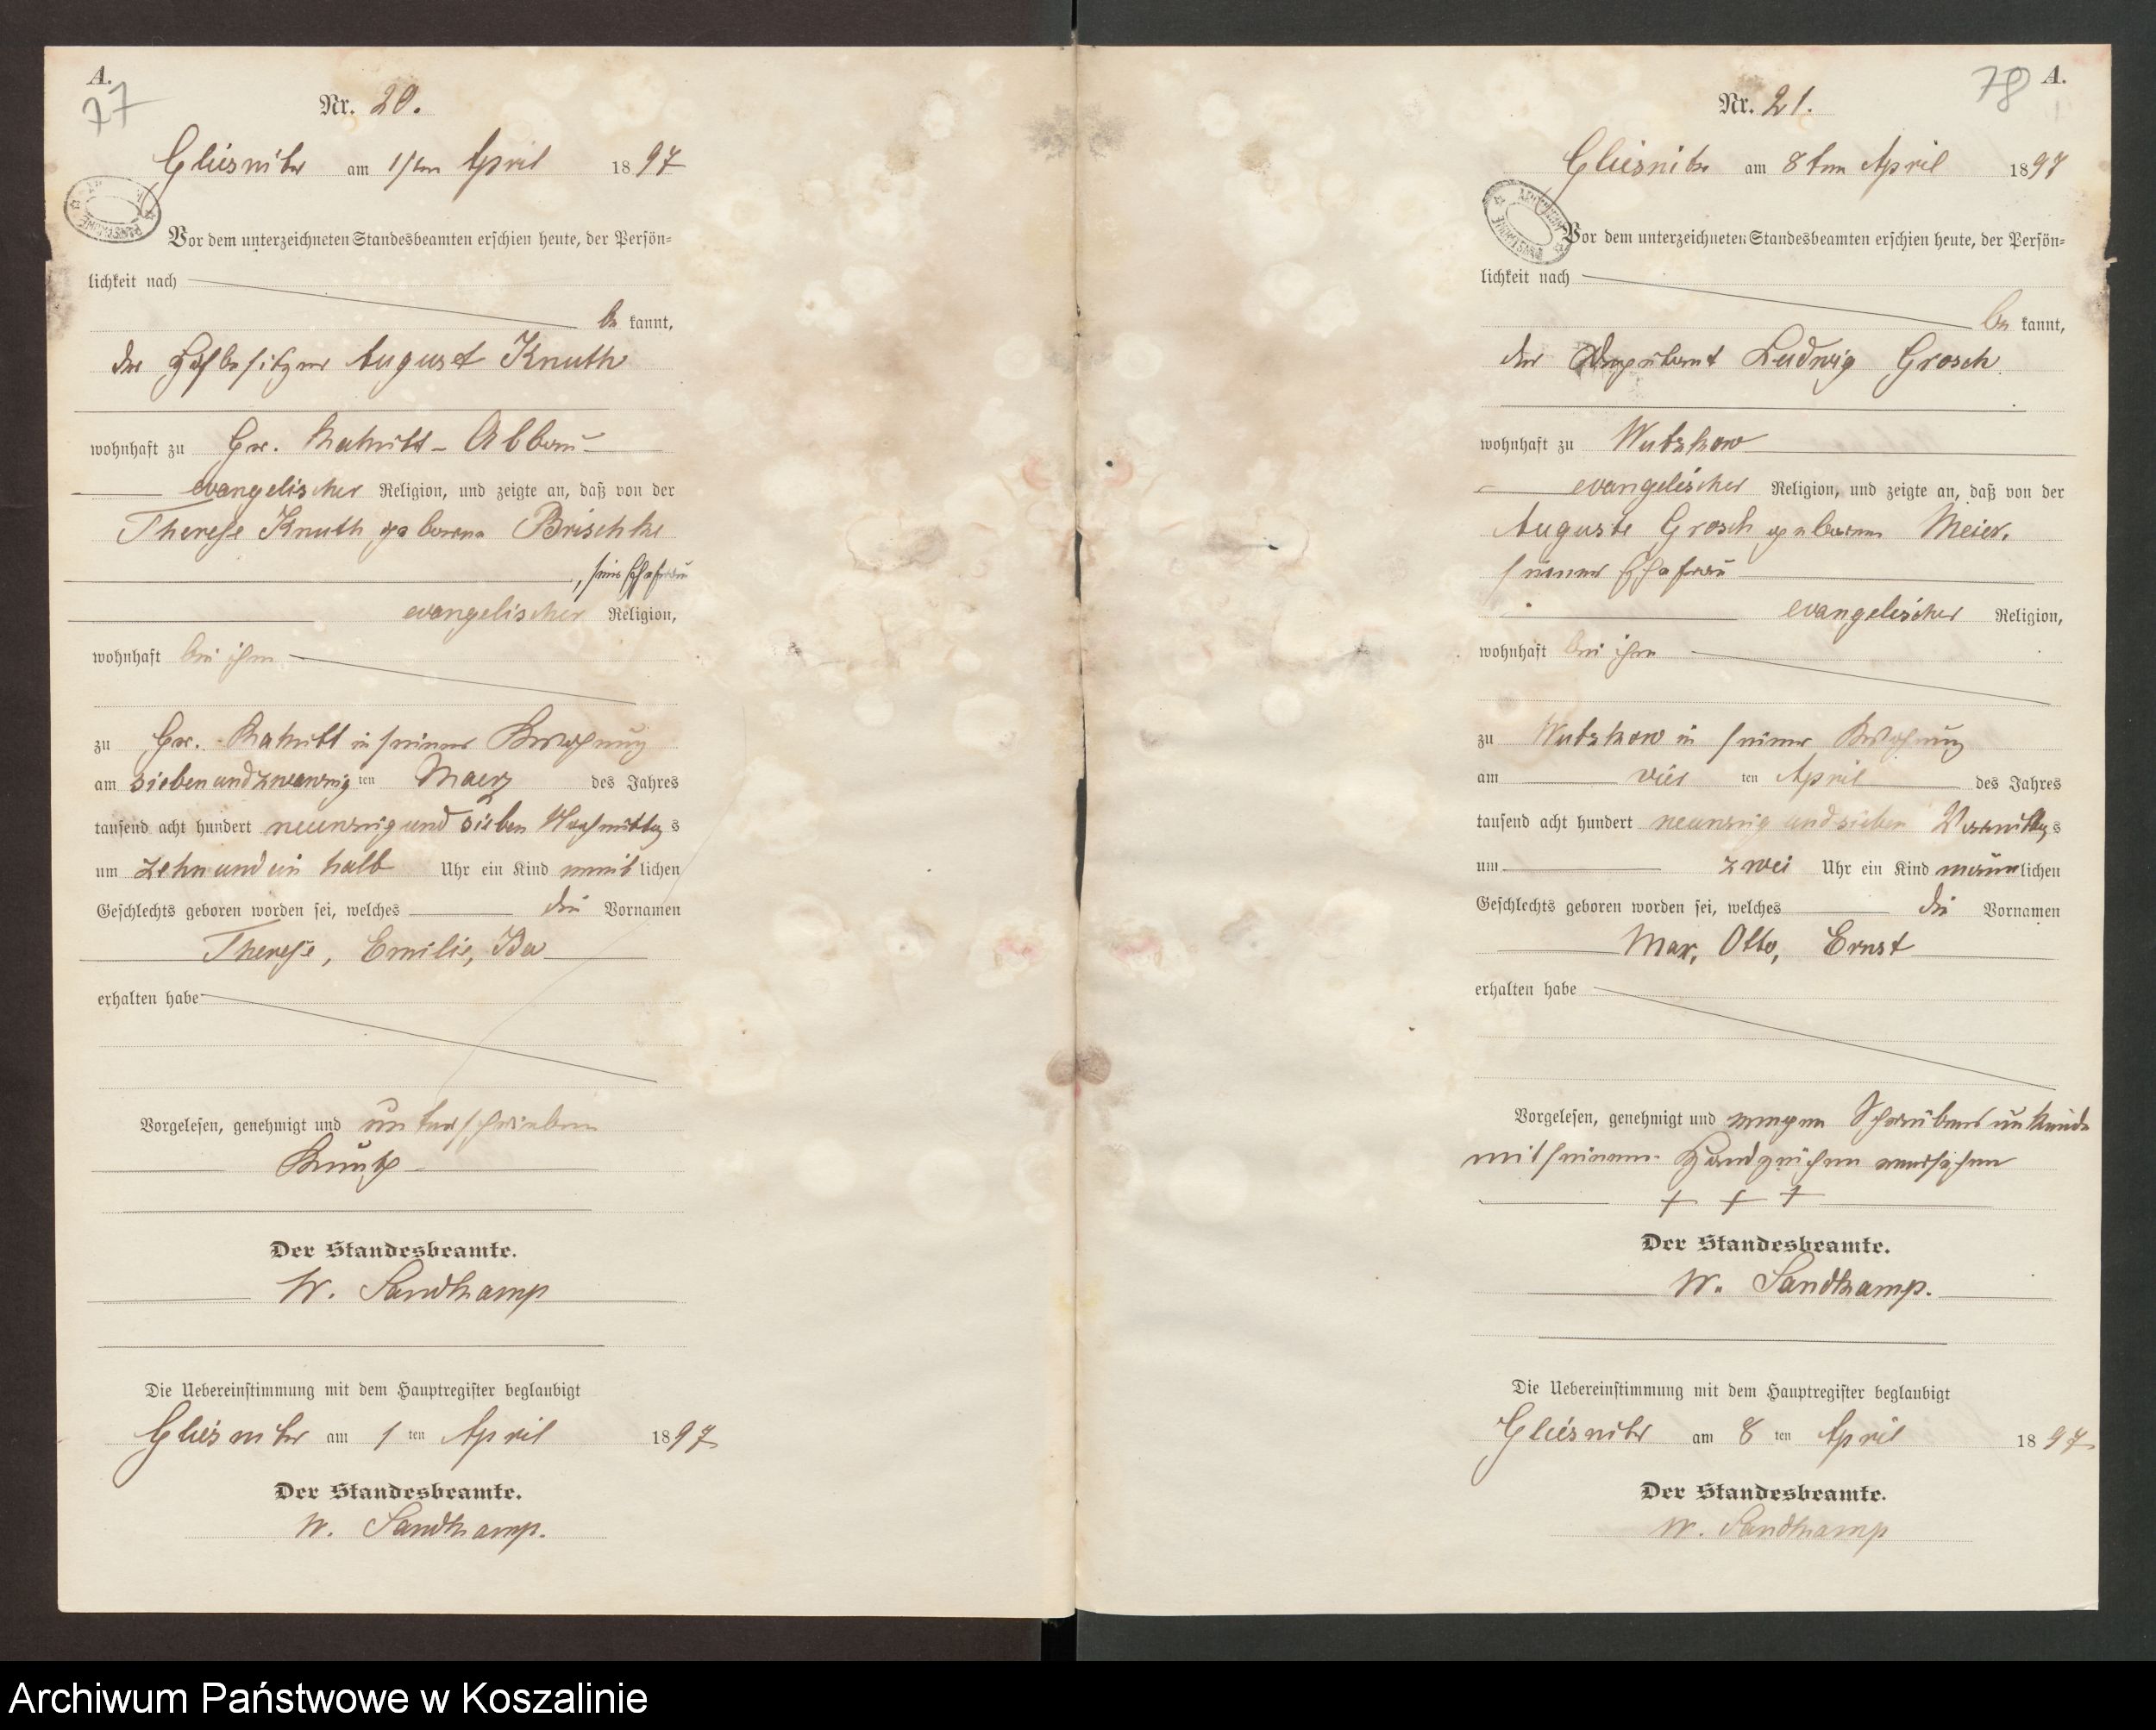 A.
77
Nr. 20.
Gliesnitz am 1ten April 1897
Vor dem unterzeichneten Standesbeamten erschien heute, der Persön-
lichkeit nach
be kannt,
der Hofbesitzer August Knuth
wohnhaft zu Gr. Rakitt - Abbau
evangelischer Religion, und zeigte an, daß von der
Therese Knuth geborene Brischke
, seine Ehefrau
evangelischer Religion,
wohnhaft bei ihm
zu Gr. Rakitt in seiner Wohnung
am siebenundzwanzig ten Maerz des Jahres
tausend acht hundert neunzig und sieben Nachmittag s
um zehn und ein halb Uhr ein Kind weib lichen
Geschlechts geboren worden sei, welches die Vornamen
Therese, Emilie, Ida
erhalten habe
Vorgelesen, genehmigt und unterschrieben
Knuth
Der Standesbeamte.
W. Sandkamp
Die Uebereinstimmung mit dem Hauptregister beglaubigt
Gliesnitz am 1 ten April 1897
Der Standesbeamte.
W. Sandkamp.
78 A.
Nr. 21.
Gliesnitz am 8ten April 1897
Vor dem unterzeichneten Standesbeamten erschien heute, der Persön-
lichkeit nach
be kannt,
der Ludwig Grosch
wohnhaft zu Wutzkow
evangelischer Religion, und zeigte an, daß von der
Auguste Grosch geborene Meier.
seiner Ehefrau
evangelischer Religion,
wohnhaft bei ihm
zu Wutzkow in seiner Wohnung
am vier ten April des Jahres
tausend acht hundert neunzig und sieben Vormittag s
um zwei Uhr ein Kind männlichen
Geschlechts geboren worden sei, welches die Vornamen
Max, Otto, Ernst
erhalten habe
Vorgelesen, genehmigt und wegen Schreibens unkunde
mit seinem Handzeichen versehen
+ + +
Der Standesbeamte.
W. Sandkamp.
Die Uebereinstimmung mit dem Hauptregister beglaubigt
Gliesnitz am 8 ten April 1897
Der Standesbeamte.
W. Sandkamp
Archiwum Państwowe w Koszalinie